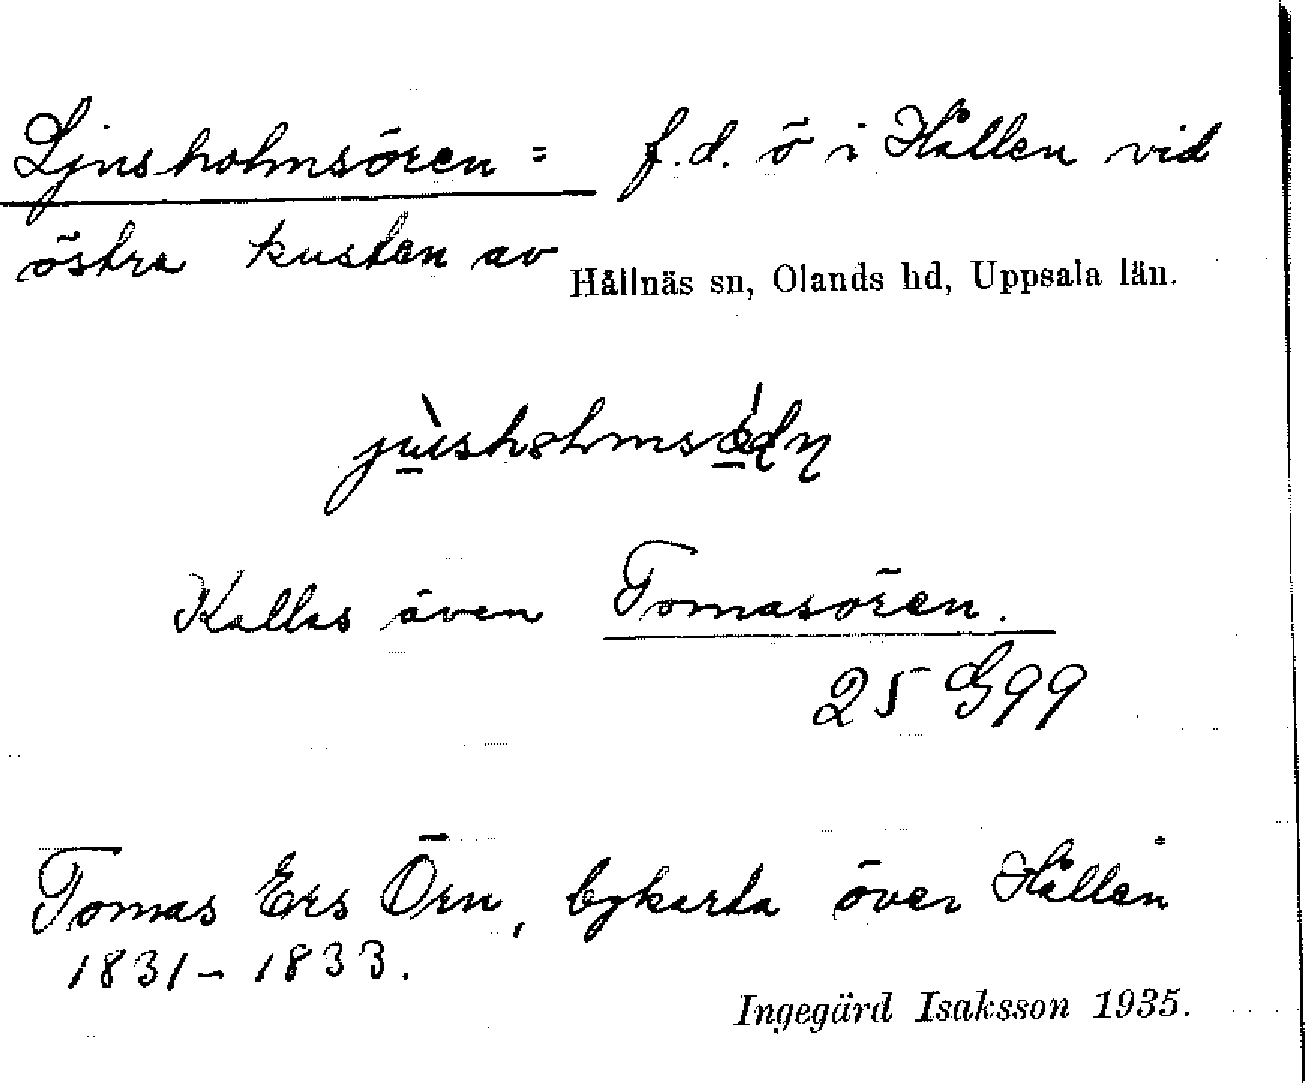 Ljusholmsören = f.d. ö i Hållen vid
östra kusten av Hållnäs sn, Olands hd, Uppsala län.
Kallas även Tomasören.
25 G 99
Tomas Ers Örn, bykarta över Hållen
1831 – 1833.
Ingegärd Isaksson 1935.